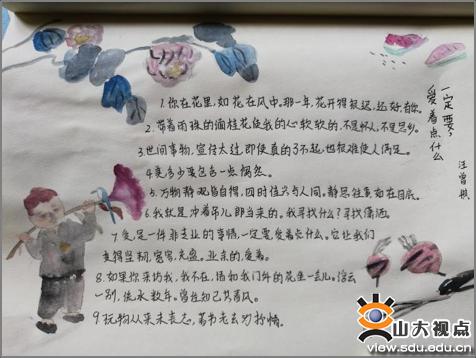 一定要，
爱着点什么
汪曾祺
1.你在花里，如花在风中。那一年，花开得很迟，还好，有你。
2.带着雨珠的缅桂花使我的心软软的，不是怀人，不是思乡。
3.世间事物，宣传太过，即使真的了不起，也很难使人满足。
4.更多少要包含一点偶然。
5.万物静观皆自得，四时佳兴与人同。静思往事，如在目底。
6.我就是冲着吊儿郎当来的。我寻找什么？寻找潇洒。
7.爱是一件非专业的事情，一定要爱着点什么。它让我们
变得坚韧，宽容，充盈。业余的，爱着。
8.如果你来访我，我不在，请和我门外的花坐一会儿。
一别，流水数年。
9.玩物从来未丧志，著书老去为抒情。
山大视点
view.sdu.edu.cn